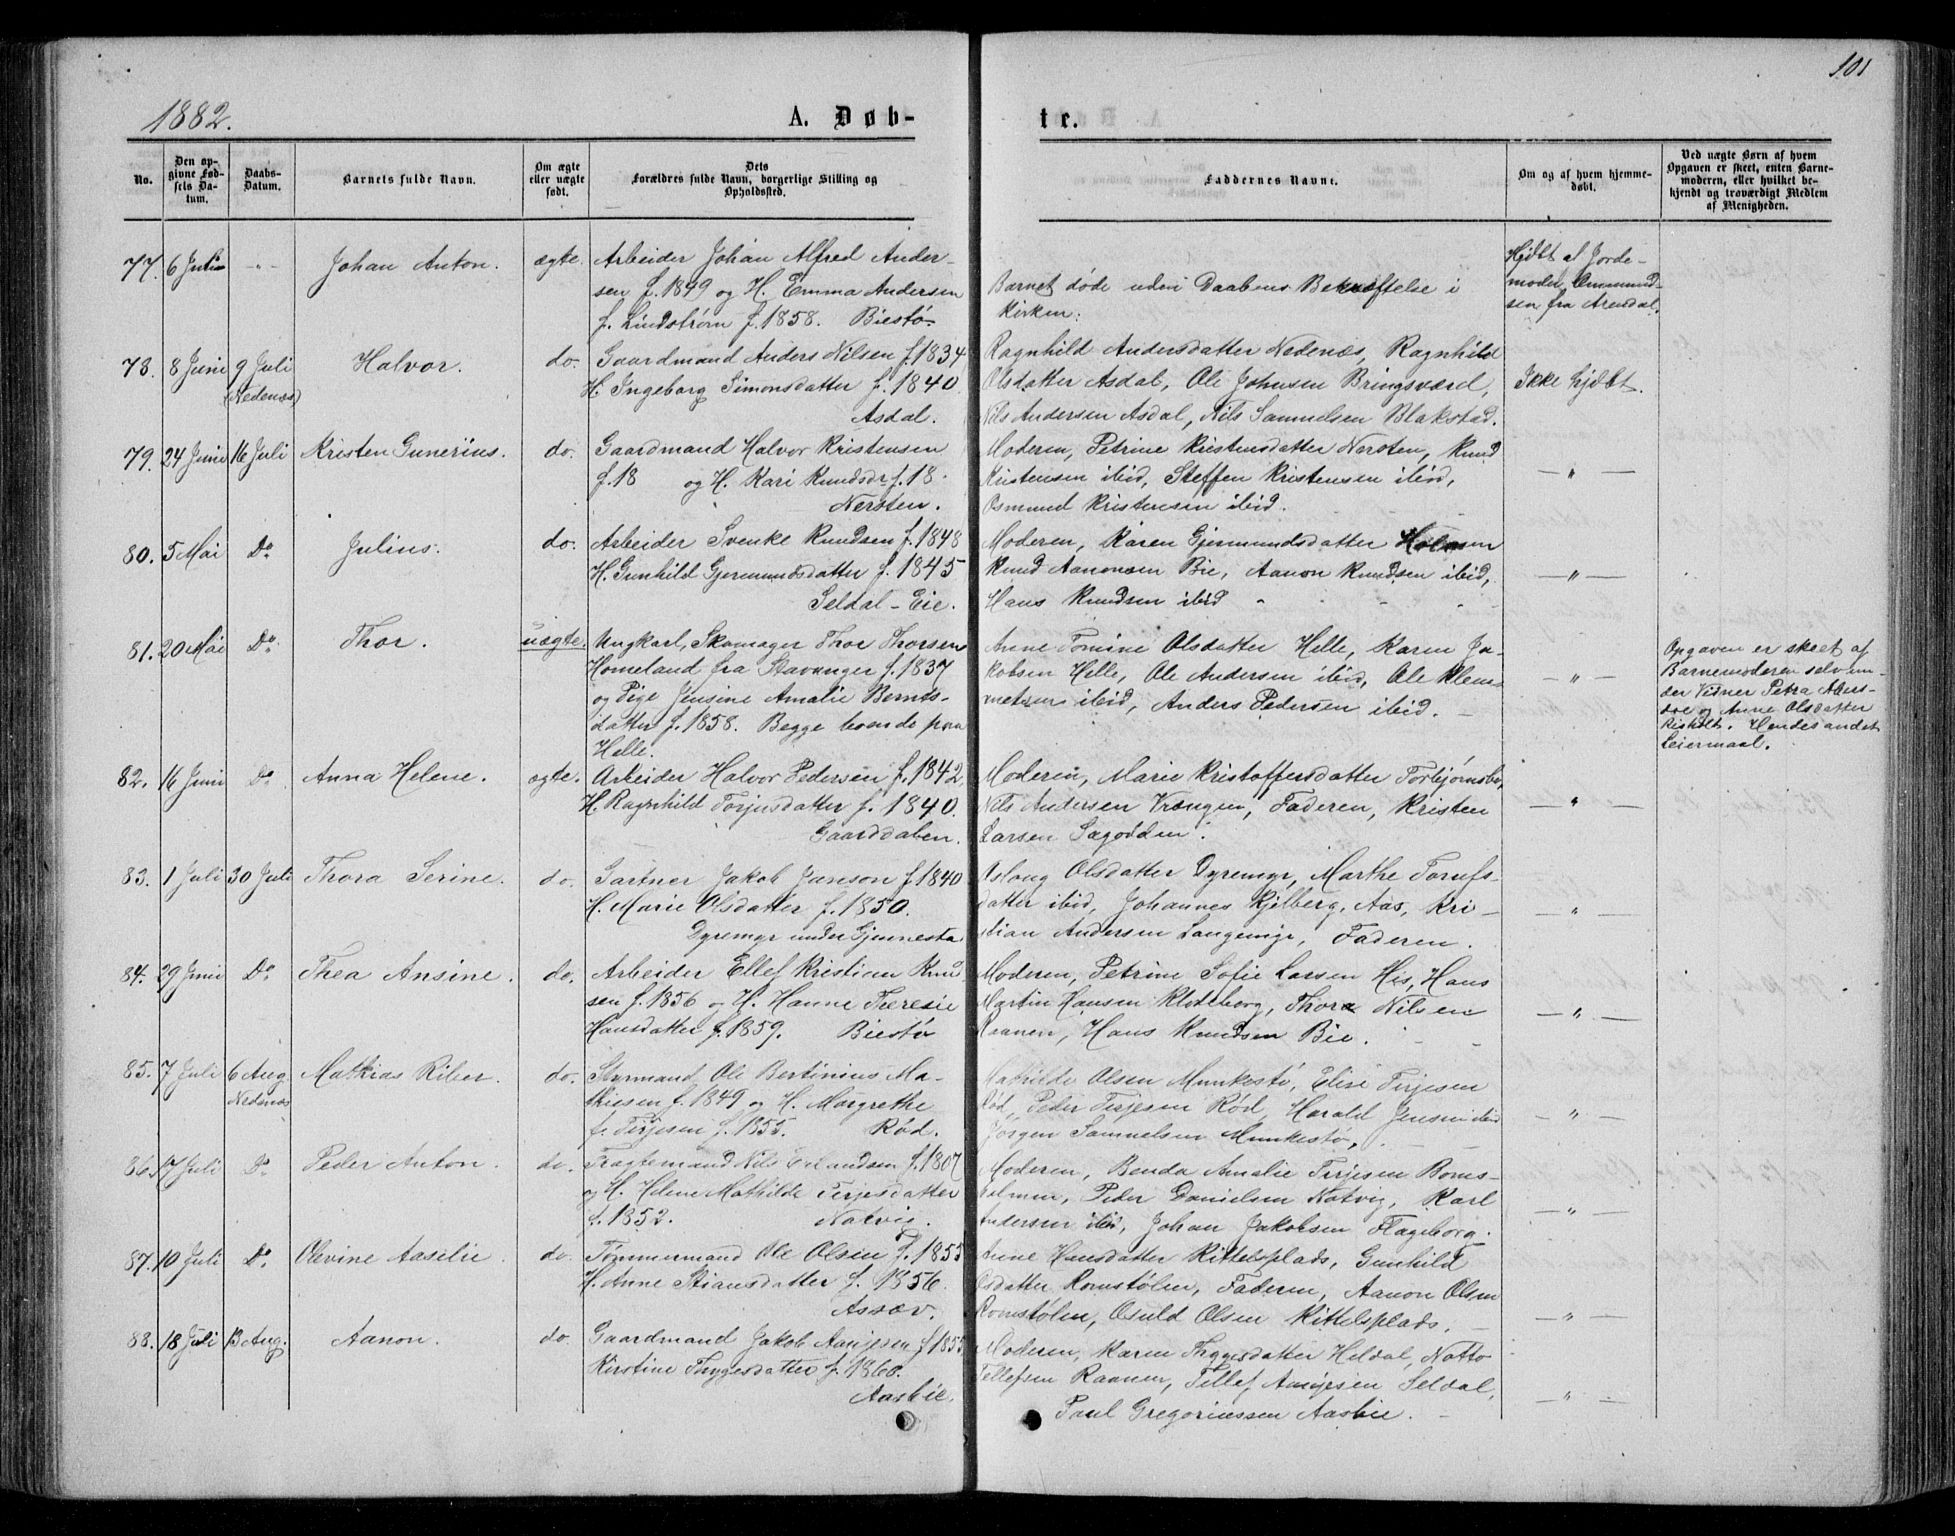 101
1882.
A. Døb-
te.
No.
Den op-
givne Fød-
sels Da-
tum.
Daabs-
Datum.
Barnets fulde Navn.
Om ægte
eller uægte
født.
Dets
Forældres fulde Navn, borgerlige Stilling og
Opholdssted.
Faddernes Navne.
Om og af hvem hjemme-
døbt.
Ved uægte Børn af hvem
Opgaven er skeet, enten Barne-
moderen, eller hvilket be-
kjendt og troværdigt Medlem
af Menigheden.
77. 6 Juli -"- Johan Anton. ægte. Arbeider Johan Alfred Ander-
sen f. 1849 og H. Emma Andersen
f. Lindstrøm f. 1858. Biestø.
Barnet døde uden Daabens Bekræftelse i
Kirken.
Hjdbt af Jorde-
moder Ommund-
sen fra Arendal.
78. 8 Juni 9 Juli Halvor. do. Gaardmand Anders Nilsen f. 1834
(Nedenæs) H. Ingeborg Simonsdatter f. 1840.
Asdal.
Ragnhild Andersdatter Nedenæs, Ragnhild
Olsdatter Asdal, Ole Johnsen Bringsværd,
Nils Andersen Asdal, Nils Samuelsen Blakstad.
Ikke hjdbt.
79. 24 Juni 16 Juli Kristen Gunerius. do. Gaardmand Halvor Kristensen
f. 18 og H. Kari Knudsdr f. 18
Nersten.
Moderen, Petrine Kristensdatter Nersten, Knud
Kristensen ibid, Steffen Kristensen ibid,
Osmund Kristensen ibid.
— " —
80. 5 Mai Do Julius. do. Arbeider Svenke Knudsen f. 1848
H. Gunhild Gjermundsdatter f. 1845
Seldal-Eie.
Moderen, Karen Gjermundsdatter
Knud Aanonsen Bie, Aanon Knudsen ibid,
Hans Knudsen ibid
— " —
81. 20 Mai Do Thor. uægte. Ungkarl, Skomager Thor Thorsen
Homeland fra Stavanger f. 1837
og Pige Jensine Amalie Bernts-
datter f. 1858. Begge boende paa
Helle.
Anne Tomine Olsdatter Helle, Karen Ja-
kobsen Helle, Ole Andersen ibid, Ole Klem-
metsen ibid, Anders Pedersen ibid.
— " —
Opgaven er skeet af
Barnemoderen selv un-
der Vidner Petra
og Anne Olsdatter
Risholt. Hendes andet
Leiermaal.
82. 16 Juni Do Anna Helene. ægte. Arbeider Halvor Pedersen f. 1842,
H. Ragnhild Torjusdatter f. 1840.
Gaarddalen.
Moderen, Marie Kristoffersdatter Torbjørnsbo,
Nils Andersen Vrængen, Faderen, Kristen
Larsen Sagodden.
— " —
83. 1 Juli 30 Juli Thora Serine. do. Gartner Jakob Janson f. 1840
H. Marie Olsdatter f. 1850.
Dyremyr under Gjennestad
Aslaug Olsdatter Dyremyr, Marthe Torufs-
datter ibid, Johannes Kjelberg, Aas, Kri-
stian Andersen Langemyr, Faderen.
— " —
84. 29 Juni Do Thea Ansine. do. Arbeider Ellef Kristian Knud-
sen f. 1856 og H. Hanne Teresie
Hansdatter f. 1859. Biestø
Moderen, Petrine Sofie Larsen His, Hans
Martin Hansen Klodeborg, Thora Nilsen
Raanen, Hans Knudsen Bie.
— " —
85. 7 Juli 6 Aug Mathias Riber. do. Styrmand Ole Bertinius Ma-
Nedenæs thiesen f. 1849 og H. Margrethe
f. Terjesen f. 1855. Rød.
Mathilde Olsen Munkestø, Elise Terjesen
Rød, Peder Terjesen Rød, Harald Jensen ibid
Jørgen Samuelsen Munkestø,
— " —
86. 17 Juli Do Peder Anton. do. Fragtemand Nils Erlandsen f. 1807
og H. Helene Mathilde Terjesdatter
f. 1852. Natvig.
Moderen, Benda Amalie Terjesen Boms-
holmen, Peder Danielsen Natvig, Karl
Andersen ibid, Johan Jakobsen Flageborg.
— " —
87. 10 Juli Do Olevine Aaselie do. Tømmermand Ole Olsen f. 1855
H. Anne Stiansdatter f. 1856.
Assæv.
Anne Hansdatter Kittelsplads, Gunhild
Osdatter Romstølen, Faderen, Aanon Olsen
Romstølen, Osuld Olsen Kittelsplads.
— " —
88. 18 Juli 13 Aug. Aanon. do. Gaardmand Jakob Aanjesen f. 1855
Kirstine Thygesdatter f. 1860.
Aasbie.
Moderen, Karen Thygesdatter Heldal, Notto
Tellefsen Raanen, Tellef Aanjesen Seldal,
Paul Gregoriussen Aasbie.
— " —